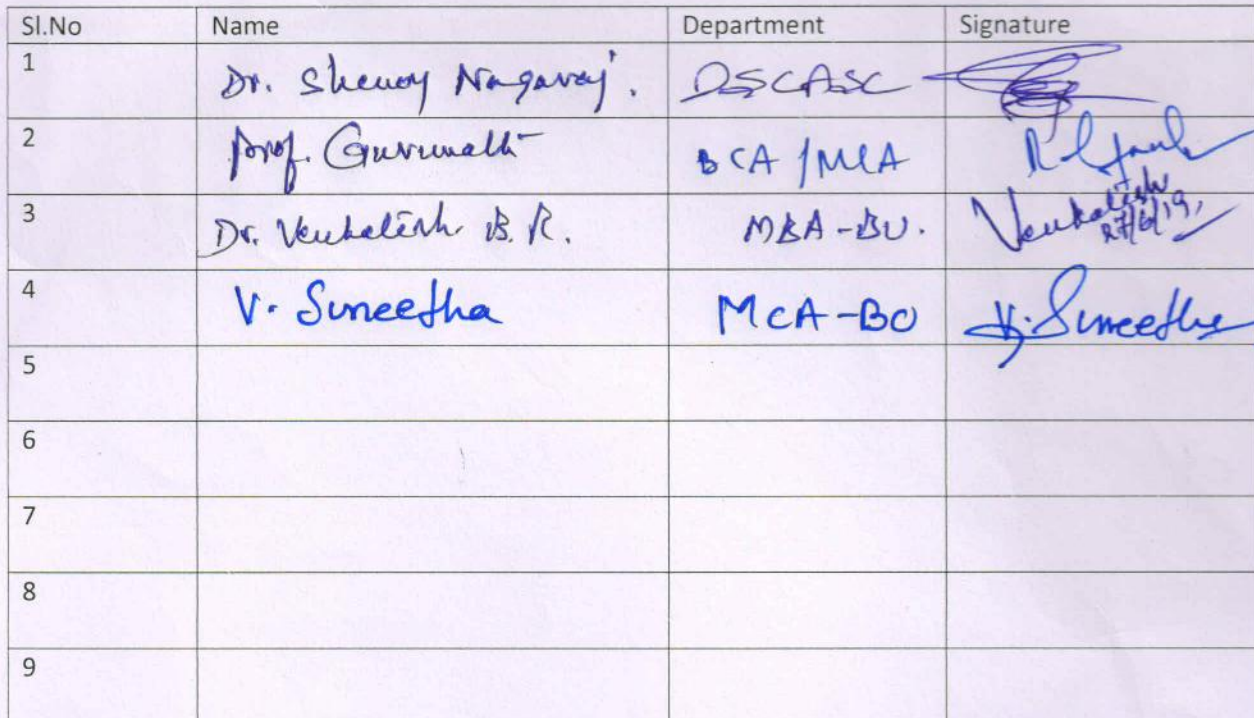 Sl.No Name Department Signature
1 Dr. Shenoy Nagaraj. DSCASC
2 Prof. Gurunath BCA/MCA
3 Dr. Venkatesh B.R. MBA-BU. Venkatesh
27/6/19,
4 V. Suneetha MCA-BU V. Suneetha
5
6
7
8
9